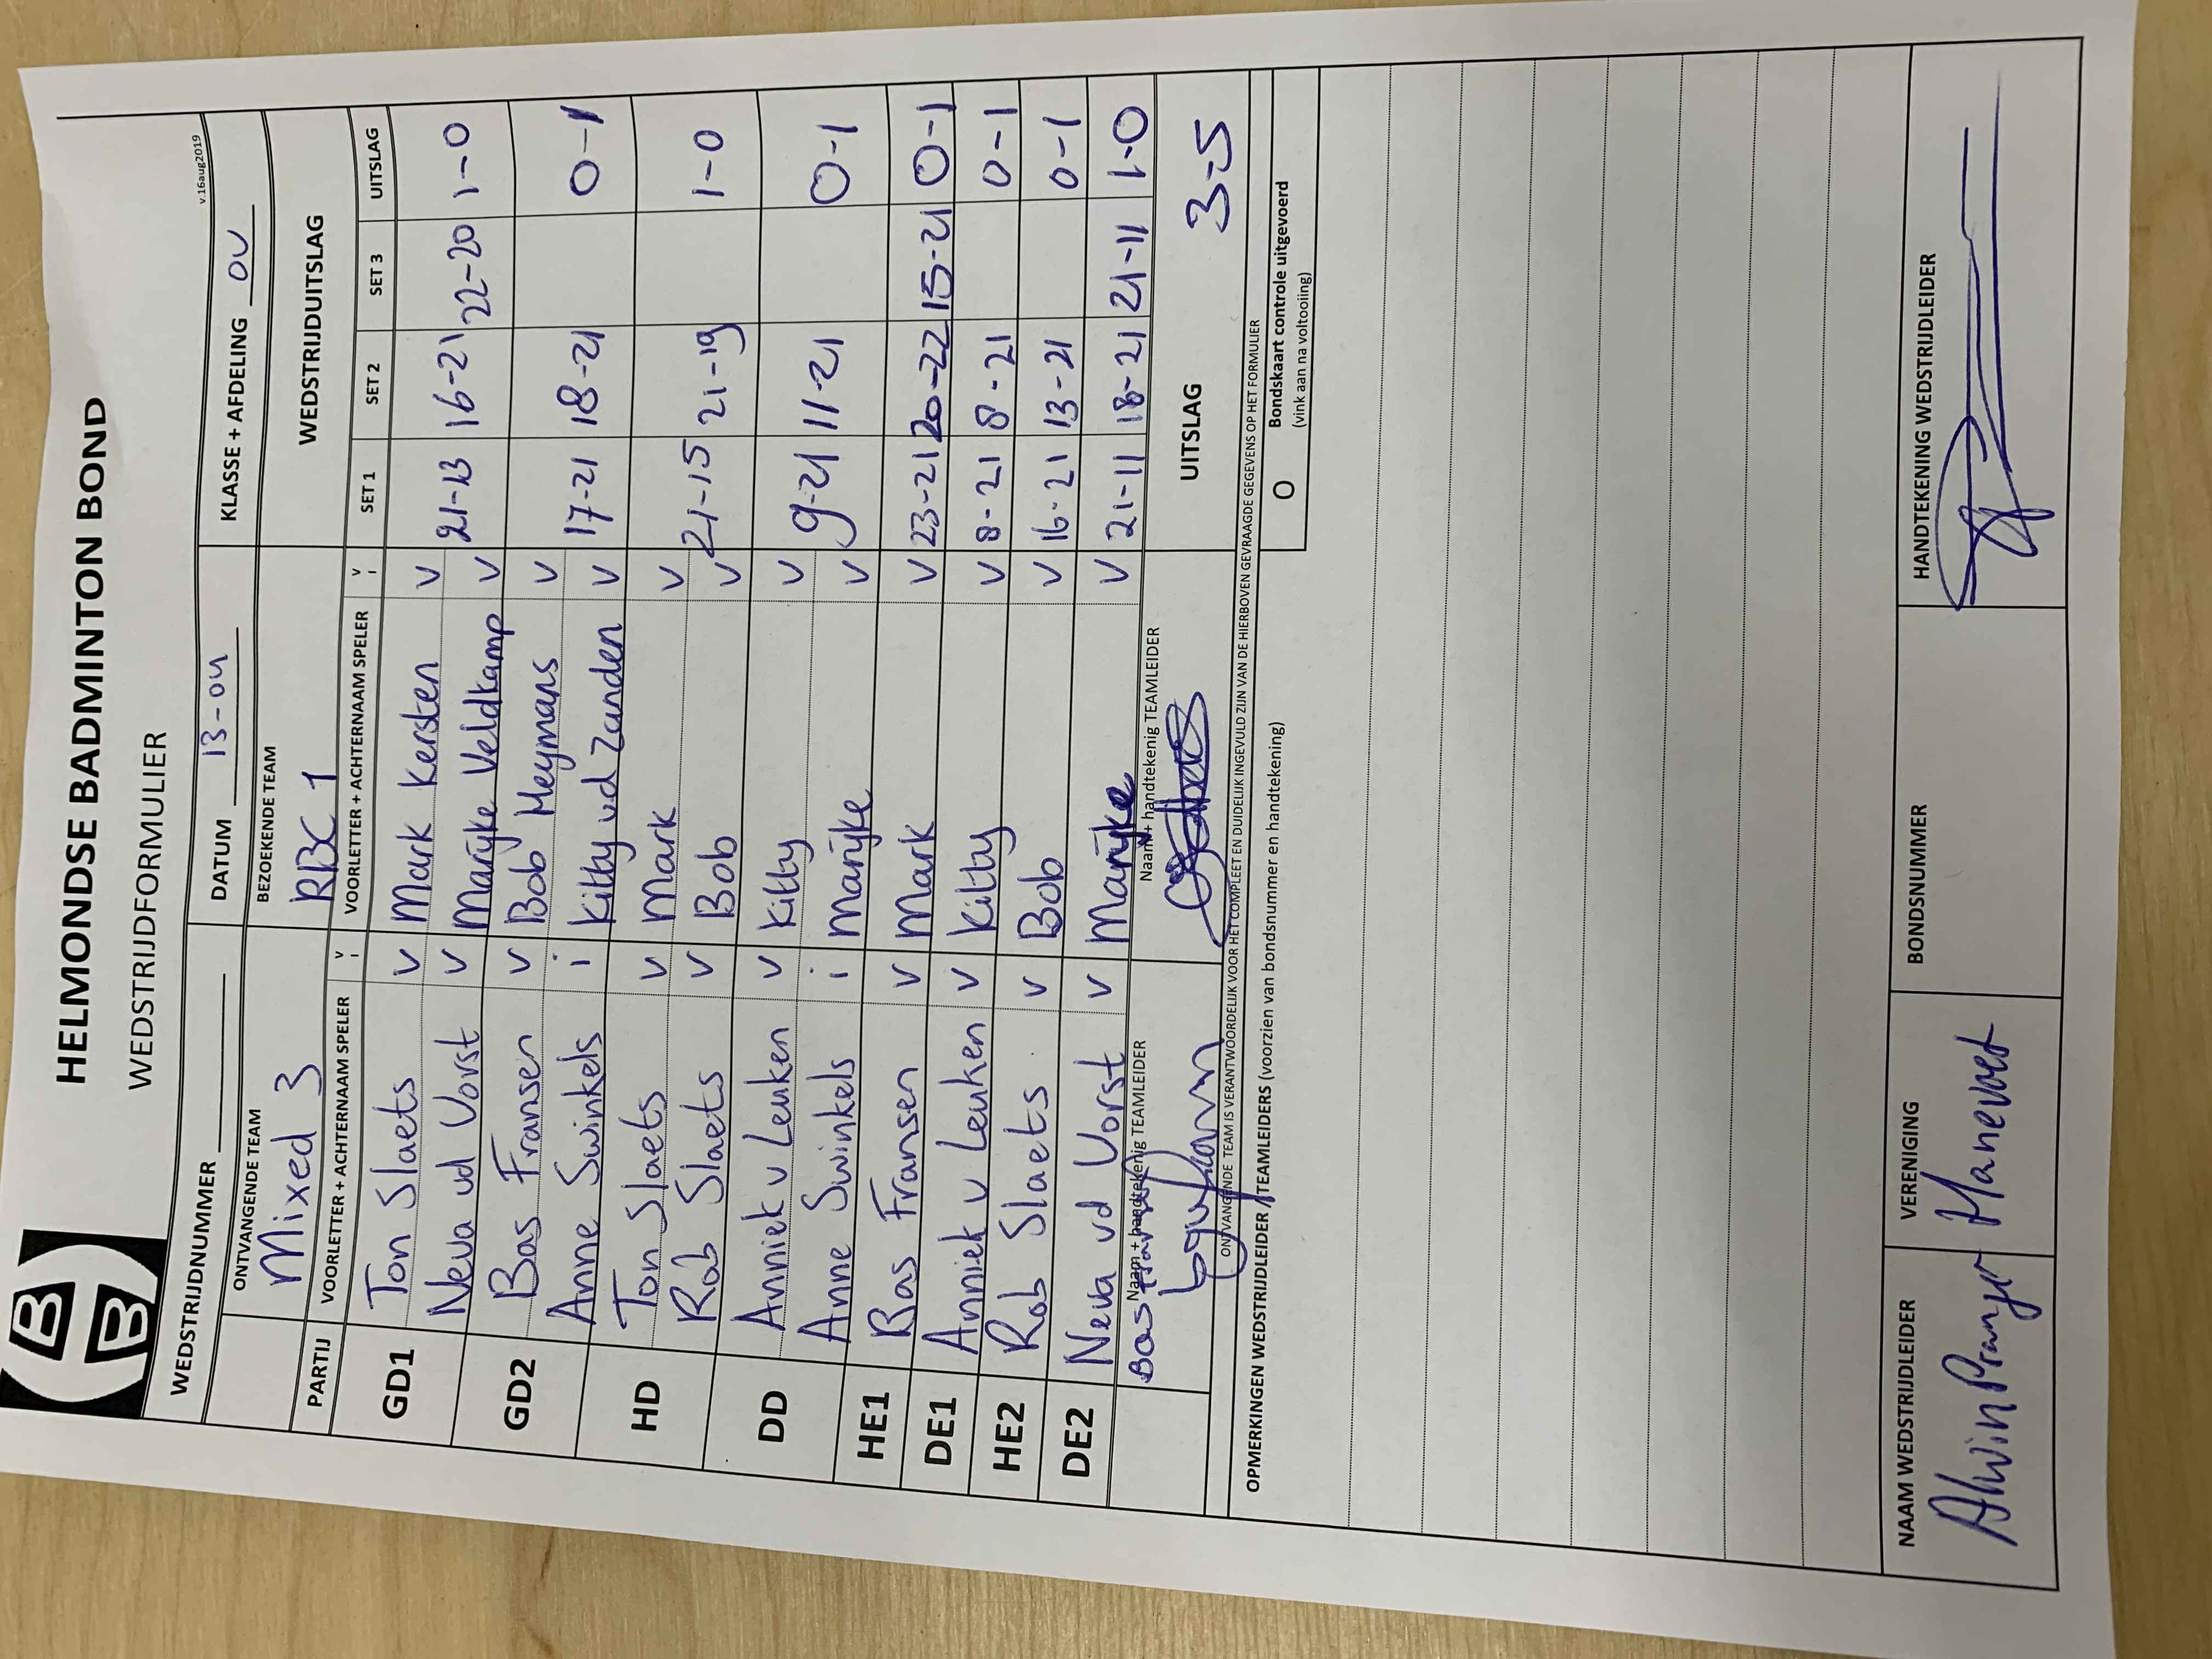 HELMONDSE BADMINTON BOND
WEDSTRIJDFORMULIER
v.16aug2019
WEDSTRIJDNUMMER DATUM 13-04 KLASSE + AFDELING OV
ONTVANGENDE TEAM BEZOEKENDE TEAM WEDSTRIJDUITSLAG
Mixed 3 RBC 1
PARTIJ VOORLETTER + ACHTERNAAM SPELER V I VOORLETTER + ACHTERNAAM SPELER V I SET 1 SET 2 SET 3 UITSLAG
GD1 Ton Slaets V Mark Kersten V 21-13 16-21 22-20 1-0
Neva vd Vorst V Marijke Veldkamp V
GD2 Bas Fransen V Bob Heymans V 17-21 18-21 0-1
Anne Swinkels i Kitty vd Zanden V
HD Ton Slaets V Mark V 21-15 21-19 1-0
Rob Slaets V Bob V
DD Anniek v Leuken V Kitty V 9-21 11-21 0-1
Anne Swinkels i Marijke V
HE1 Bas Fransen V Mark V 23-21 20-22 15-21 0-1
DE1 Anniek v Leuken V Kitty V 8-21 8-21 0-1
HE2 Rob Slaets V Bob V 16-21 13-21 0-1
DE2 Neva vd Vorst V Marijke V 21-11 18-21 21-11 1-0
Naam + handtekenig TEAMLEIDER Naam + handtekenig TEAMLEIDER UITSLAG 3-5
Bas Fransen
ONTVANGENDE TEAM IS VERANTWOORDELIJK VOOR HET COMPLEET EN DUIDELIJK INGEVULD ZIJN VAN DE HIERBOVEN GEVRAAGDE GEGEVENS OP HET FORMULIER
OPMERKINGEN WEDSTRIJDLEIDER /TEAMLEIDERS (voorzien van bondsnummer en handtekening)
O Bondskaart controle uitgevoerd
(vink aan na voltooiing)
NAAM WEDSTRIJDLEIDER VERENIGING BONDSNUMMER HANDTEKENING WEDSTRIJDLEIDER
Alwin Pranger Planevoet